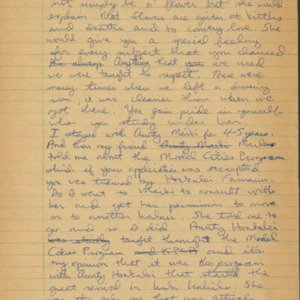 not simply be a flower but she would
explain that flowers are given at births
and deaths and for coming love. She
would give you a special feeling
for every subject that you danced
we used
we were taught to respect. There were
many times when we left a dancing
soon, it was cleaner than when we
got there. You gain pride in yourself
when you study under her.
I stayed with Aunty Maiki for 4-5 years.
And then my friend Aunty Maiki
told me about the Model Cities Program
which if your application was accepted
you were trained by Hoakalei Kamauu.
So I went to Maiki to consult with
her and get her permission to move
on to another kumu. She told me to
go and so I did. Aunty Hoakalei
was taught through the Model
Cities Program and its
my opinion that it was this program
with Aunty Hoakalei that started the
great revival in male kahiko. She